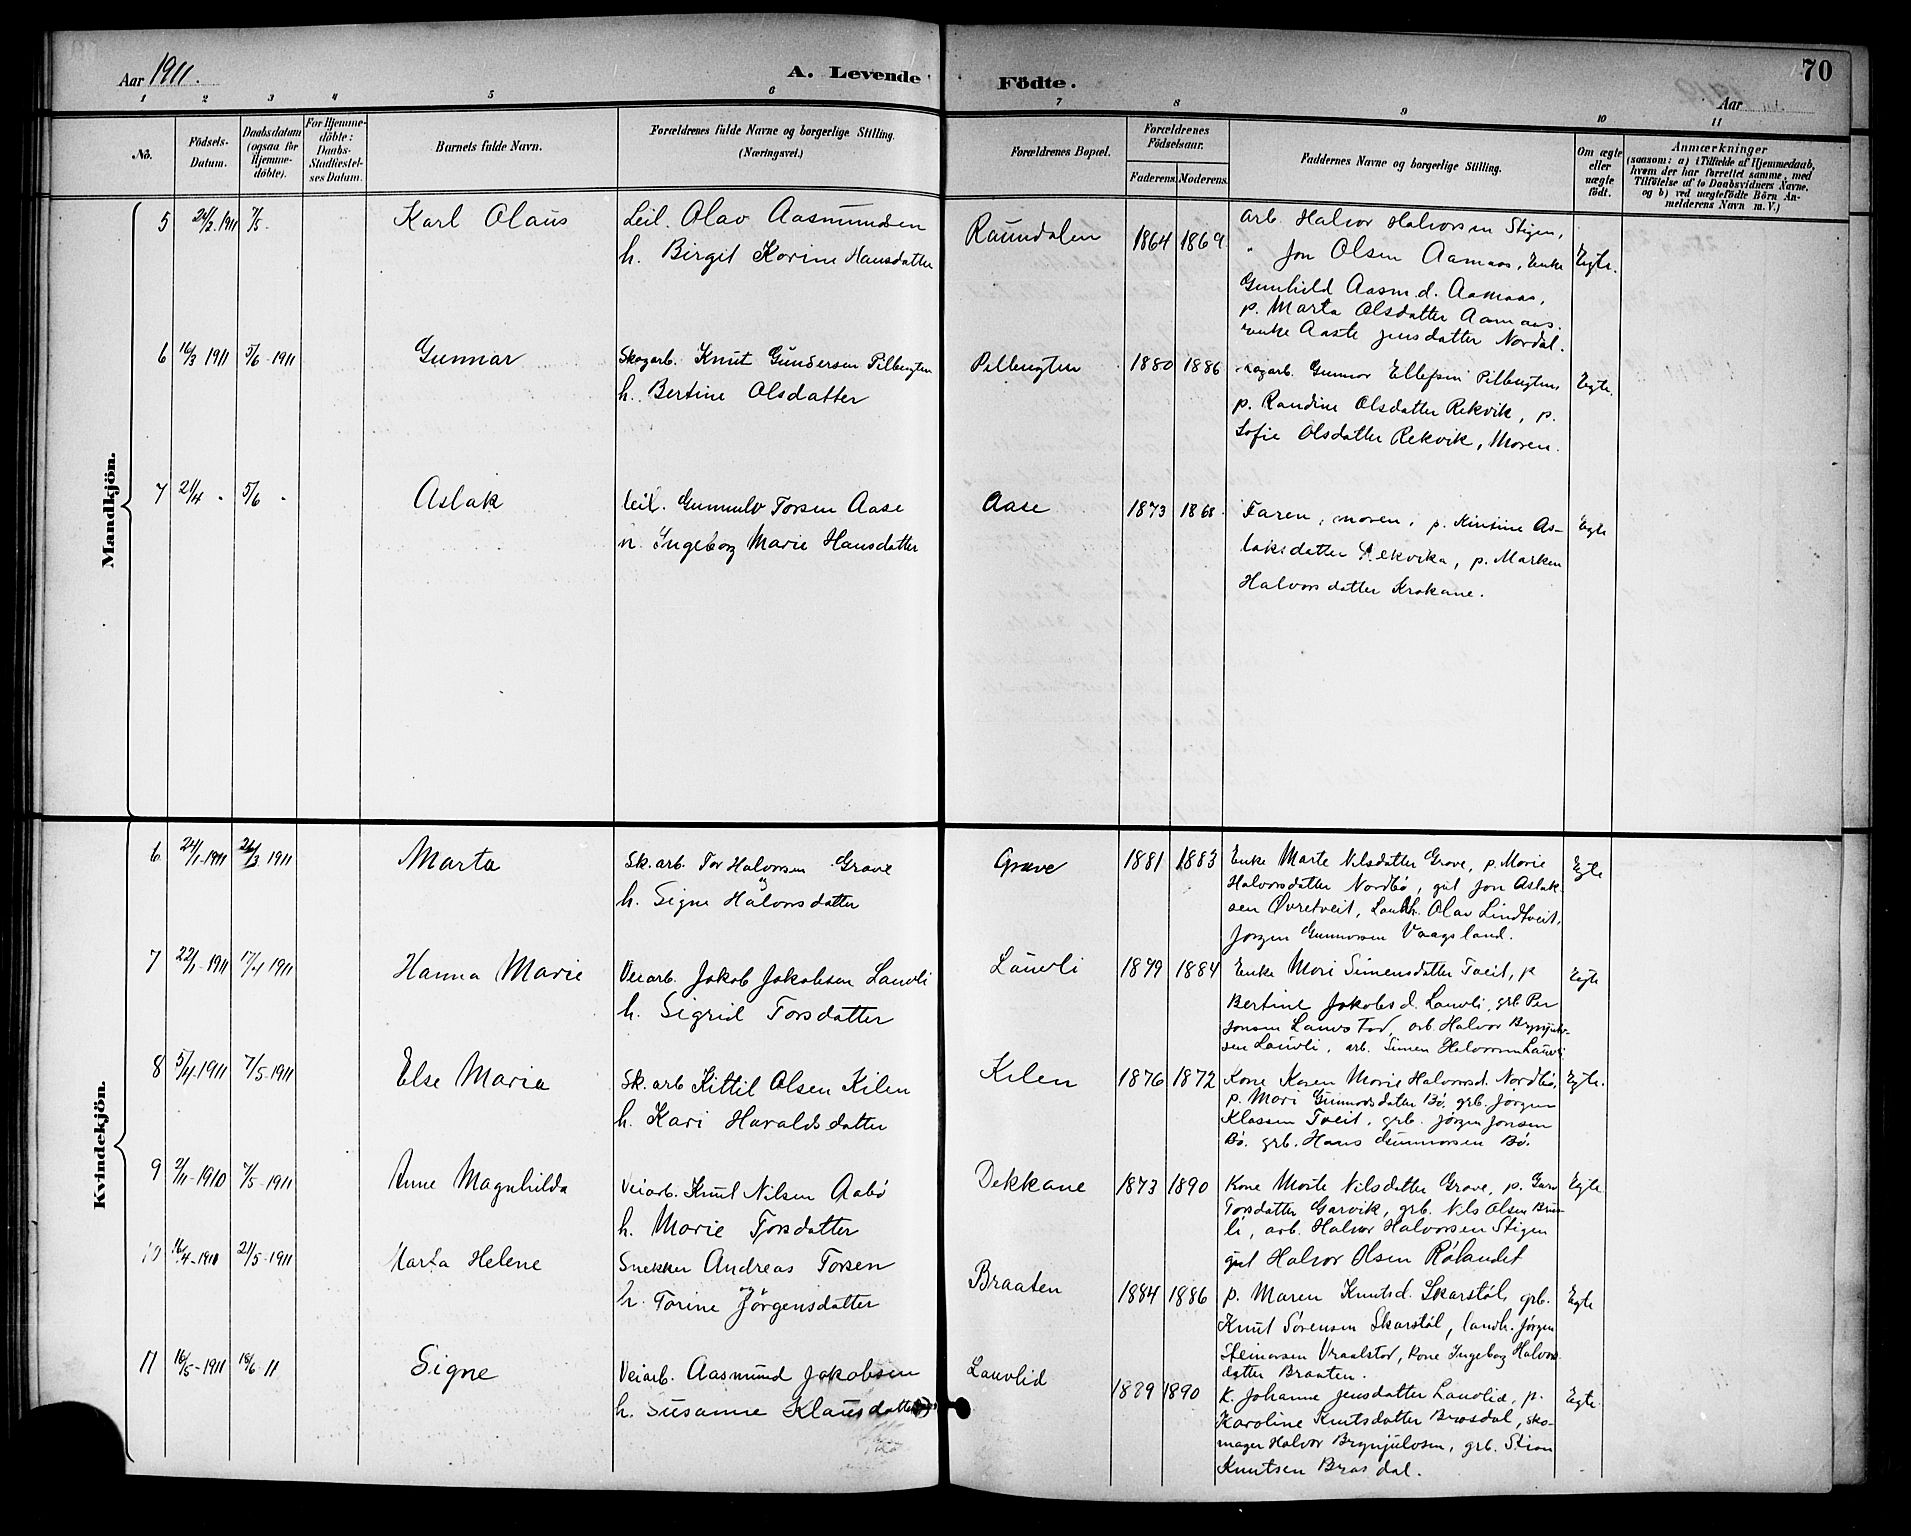 Aar 1911.
A. Levende
Födte.
70
Aar
1 2 3 4 5 6 7 8 9 10 11
No. Födsels-Datum. Daabsdatum (ogsaa for Hjemme-döbte). For Hjemme-döbte: Daabs-Stadfæstel-ses Datum. Barnets fulde Navn. Forældrenes fulde Navne og borgerlige Stilling. (Næringsvei.)
Forældrenes Bopæl. Forældrenes Födselsaar. Faderens. Moderens. Faddernes Navne og borgerlige Stilling. Om ægte eller uægte födt.
Anmærkninger
(saasom: a) i Tilfælde af Hjemmedaab,
hvem der har forrettet samme, med
Tilföielse af to Daabsvidners Navne.
og b) ved uægtefödte Börn An-
melderens Navn m. V.)
Mandkjön.
5 24/2 1911 7/5. Karl Olaus
Leil. Olav Aasmundsen
h. Birgit Karine Hansdatter
Raundalen 1864 1869
arb. Halvor Halvorsen Stigen,
" Jon Olsen Aamaas, Enke
Gunhild Aasm.d. Aamaas,
p. Marta Olsdatter Aamaas.
enke Aaste Jensdatter Nordal.
Egte.
6 16/3 1911 5/6 1911 Gunnar
Skogarb. Knut Gundersen Pilbugten
h. Bertine Olsdatter
Pilbugten 1880 1886
skogarb. Gunnar Ellefsen Pilbugten
p. Randine Olsdatter Rekvik, p.
Sofie Olsdatter Rekvik, Moren.
Egte.
7 21/4 " 5/6 " Aslak
Leil. Gunnulv Torsen Aase
h. Ingeborg Marie Hansdatter
Aase 1873 1868
Faren, moren, p. Kirstine As-
laksdatter Rekvika, p. Marken
Halvorsdatter Krokane.
Egte
Kvindekjön.
6 24/1-1911 26/3 1911 Marta
Sk.arb. Tor Halvorsen Grave
og
h. Signe Halvorsdatter
Grave 1881 1883
Enke Marte Nilsdatter Grave, p. Marie
Halvorsdatter Nordbø, gut Jon Aslak-
sen Øvretveit, Landh. Olav Lindtveit,
Jørgen Gunnarsen Vaagsland.
Egte
7 22/1-1911 17/4 1911 Hanna Marie
Veiarb. Jakob Jakobsen Lauvli
h. Sigrid Torsdatter
Lauvli 1879 1884
Enke Mari Simensdatter Tveit, p
Bertine Jakobsd. Lauvli, grb. Per
Jonsen Lauvstad, arb Halvor Brynjulv-
sen Lauvli, arb. Simen Halvorsen Lauvli
Egte
8 5/4-1911 7/5-1911 Else Maria
Sk.arb Kittil Olsen Kilen
h. Kari Haraldsdatter
Kilen 1876 1872
Kone Karen Marie Halvorsd. Nordbø,
p. Mari Gunnarsdatter Bø, grb. Jørgen
Klassen Tveit, grb. Jørgen Jonsen
Bø. grb. Hans Gunnarsen Bø.
Egte.
9 2/11-1910 7/5-1911 Anne Magnhilda
Veiarb. Knut Nilsen Aabø
h. Marie Torsdatter
Dekkane 1873 1890
Kone Marte Nilsdatter Grave, p. Guro
Torsdatter Garvik, grb. Nils Olsen
arb. Halvor Halvorsen Stigen
gut Halvor Olsen Rølandet
Egte
10 16/4-1910 21/5-1911 Marta Helene
Snekker Andreas Torsen
og
h. Torine Jørgensdatter
Braaten 1884 1886
p. Maren Knutsd. Skarstøl, grb.
Knut Sørensen Skarstøl, landh. Jørgen
Steinarsen Vraalstad, kone Ingeborg Halvors-
datter Braaten.
Egte
11 16/5-1911 18/6-11 Signe
Veiarb. Aasmund Jakobsen
h. Susanne Klausdatter
Lauvlid 1889 1890
K. Johanne Jensdatter Lauvlid, p.
Karoline Knutsdatter Brosdal, sko-
mager Halvor Brynjulvsen, grb. Stian
Knutsen Brosdal.
Egte.